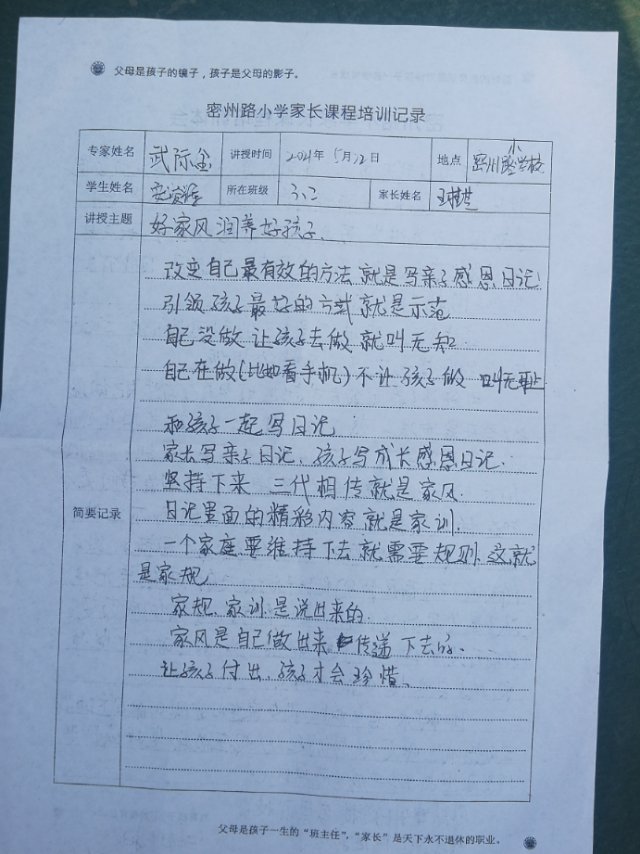 父母是孩子的镜子，孩子是父母的影子。
密州路小学家长课程培训记录
专家姓名 武际金 讲授时间 2021年5月12日 地点 密州路小学校
学生姓名 所在班级 3.2 家长姓名
讲授主题 好家风润养好孩子.
简要记录
改变自己最有效的方法就是写亲子感恩日记
引领孩子最好的方式就是示范
自己没做让孩子去做就叫无知
自己在做(比如看手机)不让孩子做 叫无耻
和孩子一起写日记
家长写亲子日记、孩子写成长感恩日记.
坚持下来 三代相传就是家风.
日记里面的精彩内容就是家训.
一个家座要维持下去就需要规则.这就
是家规
家规.家训是说出来的
家风是自己做出来传递下去的.
让孩子付出.孩子才会珍惜.
父母是孩子一生的“班主任”，“家长”是天下永不退休的职业。